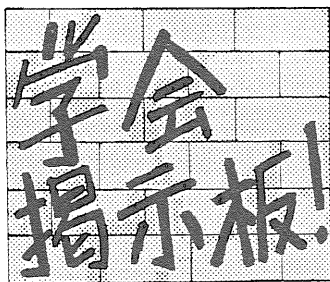 学会
掲示板!